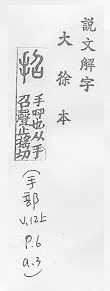 説文解字
大徐本
招
手呼也从手
召聲止搖切
(手部
v.12上
p.6
a.3)